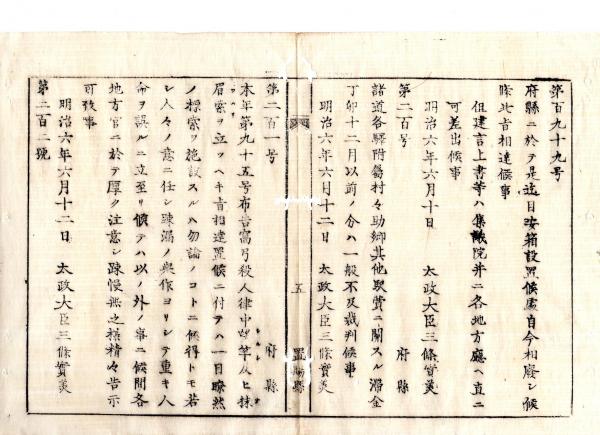 第百九十九号
府縣ニ於テ是迄目安箱設置候處自今相廃シ候
條此旨相達候事
但建言上書等ハ集議院并ニ各地方廳ヘ直ニ
可差出候事
明治六年六月十日 太政大臣三條實美
第二百号 府縣
諸道各驛附屬村々助郷其他驛費ニ關スル滞金
丁卯十二月以前ノ分ハ一般不及裁判候事
明治六年六月十二日 太政大臣三條實美
五 置賜縣
第二百一号 府縣
本年第九十五号布告窩弓殺人律中望竿及ヒ抹
眉索ヲ立ツヘキ旨相達置候ニ付テハ一目瞭然
ノ標索ヲ施設スルハ勿論ノコトニ候得トモ若
シ人々ノ意ニ任シ疎漏ノ無作ヨリシテ重キ人
命ヲ誤ルニ立至リ候テハ以ノ外ノ事ニ候間各
地方官ニ於テ厚ク注意シ疎慢無之様精々告示
可致事
明治六年六月十二日 太政大臣三條實美
第二百二號